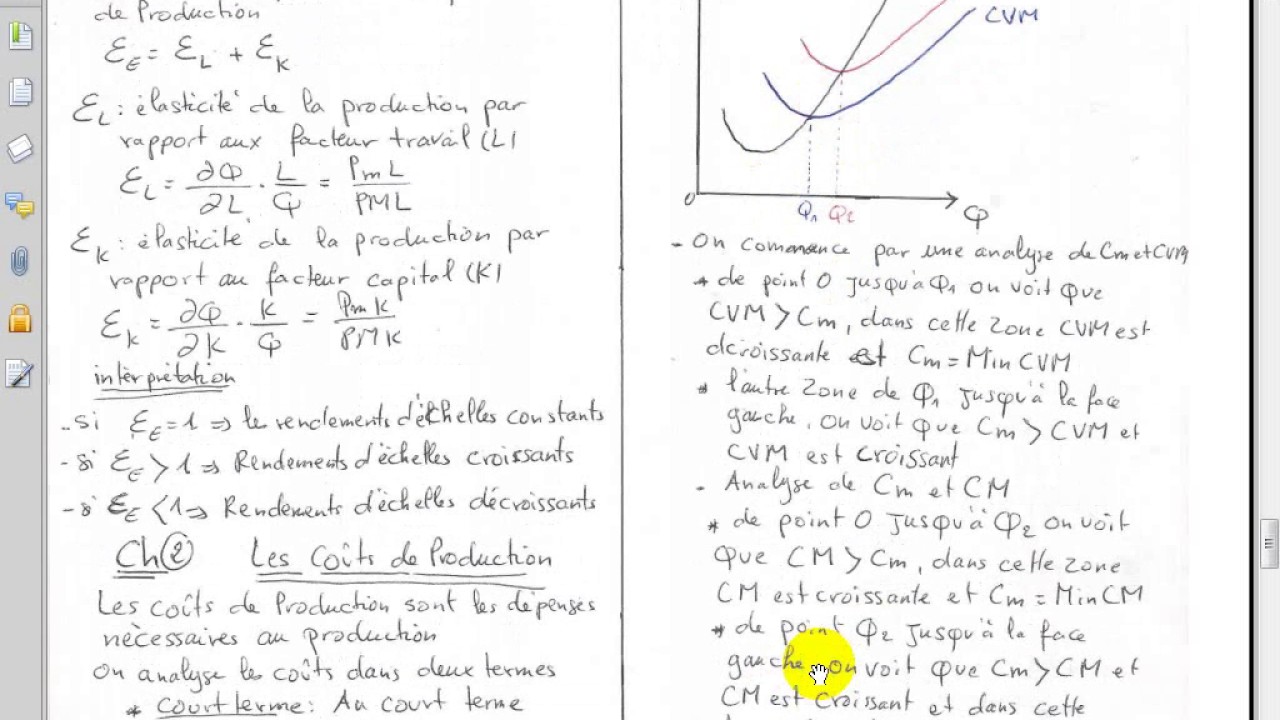 de Production
Ɛ_E = Ɛ_L + Ɛ_K
Ɛ_L : élasticité de la production par
rapport aux facteur travail (L)
Ɛ_L = ∂Q/∂L . L/Q = PmL/PML
Ɛ_K : élasticité de la production par
rapport au facteur capital (K)
Ɛ_K = ∂Q/∂K . K/Q = PmK/PMK
intérprétation
- si Ɛ_E = 1 ⇒ les rendements d'échelles constants
- si Ɛ_E > 1 ⇒ Rendements d'échelles croissants
- si Ɛ_E < 1 ⇒ Rendements d'échelles décroissants
Ch ② Les Coûts de Production
Les coûts de Production sont les dépenses
nécessaires au production
On analyse les coûts dans deux termes
* Court terme : Au court terme
CVM
0 Q1 Q2 Q
- On commence par une analyse de Cm et CVM
* de point 0 jusqu'à Q1 on voit que
CVM > Cm, dans cette zone CVM est
décroissante est Cm = Min CVM
* l'autre zone de Q1 jusqu'à la face
gauche, on voit que Cm > CVM et
CVM est croissant
- Analyse de Cm et CM
* de point 0 jusqu'à Q2 on voit
que CM > Cm, dans cette zone
CM est croissante et Cm = Min CM
* de point Q2 jusqu'à la face
gauche, on voit que Cm > CM et
CM est croissant et dans cette